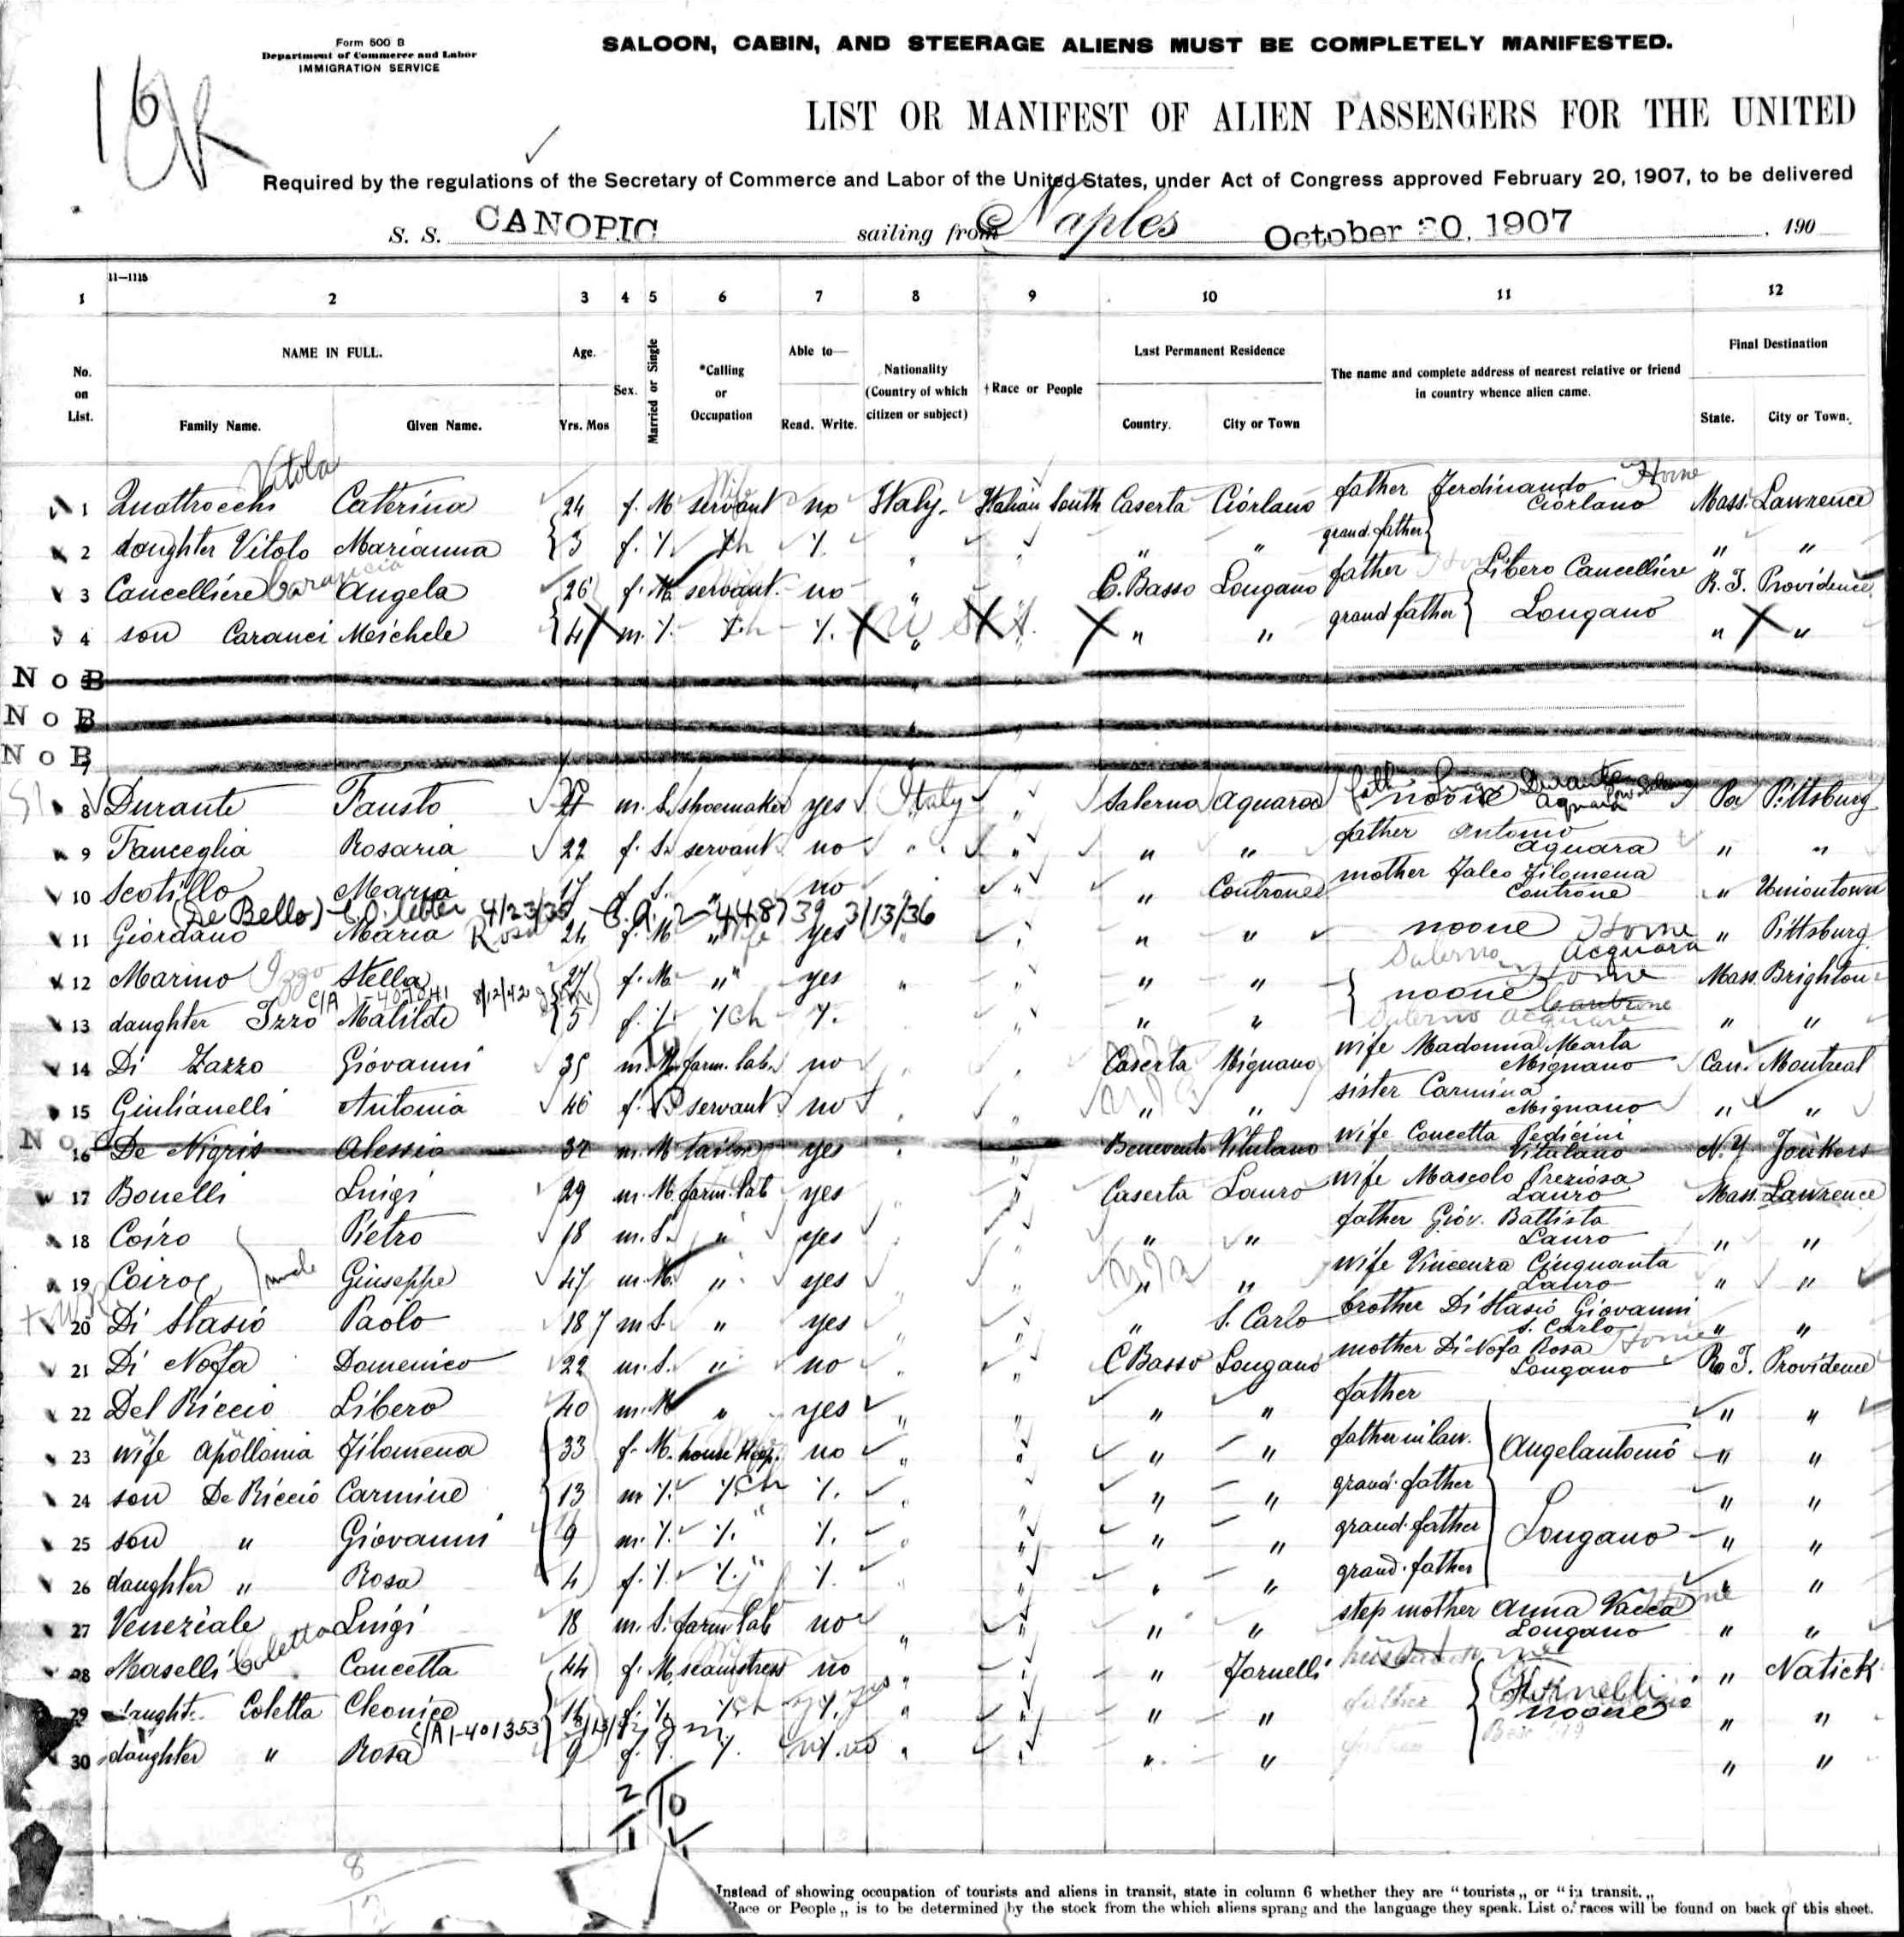 Form 500 B
Department of Commerce and Labor
IMMIGRATION SERVICE
16
SALOON, CABIN, AND STEERAGE ALIENS MUST BE COMPLETELY MANIFESTED.
LIST OR MANIFEST OF ALIEN PASSENGERS FOR THE UNITED
Required by the regulations of the Secretary of Commerce and Labor of the United States, under Act of Congress approved February 20, 1907, to be delivered
S. S. CANOPIC sailing from Naples October 20, 1907 , 190
11—1115
1 2 3 4 5 6 7 8 9 10 11 12
No. on List. NAME IN FULL. Family Name. Given Name. Age. Yrs. Mos Sex. Married or Single *Calling or Occupation Able to— Read. Write. Nationality (Country of which citizen or subject) †Race or People Last Permanent Residence Country. City or Town The name and complete address of nearest relative or friend in country whence alien came. Final Destination State. City or Town.
Vitola
1 Quattrocchi Caterina 24 f. M servant no Italy Italian South Caserta Ciorlano father Ferdinando Ciorlano Home Mass. Lawrence
2 daughter Vitolo Marianna 3 f. ch " " grand father " "
3 Cancelliere Angela 26 f. M. servant no " C. Basso Longano father Libero Cancelliere R. I. Providence
4 son Caranci Meichele 4 m. ch " " " grand father Longano " "
No B
No B
No B 7
8 Durante Fausto m. S. shoemaker yes Italy " Salerno Aquara noone Aquara Pa Pittsburg
9 Fanceglia Rosaria 22 f. S. servant no " " " " father Antonio Aquara " "
10 Scotillo Maria 17 f. S. " no " " Controne mother Falco Filomena Controne " Uniontown
(De Bello) C.O. letter 4/23/35 C.A. 2-448739 3/13/36
11 Giordano Maria Rosa 24 f. M " yes " " " " noone Home Acquara " Pittsburg
12 Marino Izzo Stella 27 f. M " yes " " " noone Home Mass. Brighton
C/A 1-407041 8/12/42
13 daughter Izzo Matilde 5 f. ch " " " "
14 Di Zazzo Giovanni 35 m. M. farm. lab. no Caserta Mignano wife Madonna Marta Mignano Can. Montreal
15 Giulianelli Antonia 46 f. servant no " " sister Carmina Mignano " "
No 16 De Nigris Alessio 37 m. M tailor yes Benevento Vitulano wife Concetta Pedicini Vitulano N.Y. Yonkers
17 Bonelli Luigi 29 m. M. farm. lab yes Caserta Lauro wife Mascolo Preziosa Lauro Mass. Lawrence
18 Coiro Pietro 18 m. S. " yes " " father Giov. Battista Lauro " "
19 Coiro Giuseppe 47 m. M. " yes " " wife Vincenza Cinquanta Lauro " "
20 Di Stasio Paolo 18 7 m S. " yes " S. Carlo brother Di Stasio Giovanni S. Carlo " "
21 Di Nofa Domenico 22 m. S. " no C Basso Longano mother Di Nofa Rosa Longano Home R. I. Providence
22 Del Riccio Libero 40 m. M " yes " " " " father " "
23 wife Apollonia Filomena 33 f. M. house keep. no " " " " father in law. Angelantonio " "
24 son De Riccio Carmine 13 m ch " " " " grand father " "
25 son " Giovanni 9 m. " " " " grand father Longano " "
26 daughter " Rosa 4 f. " " " grand father " "
27 Veneziale Luigi 18 m. S. farm lab no " " " " step mother Anna Vacca Longano Home " "
28 Maselli Coletta Concetta 44 f. M. seamstress no " " " Fornelli husband " Natick
29 daught. Coletta Cleonice 16 f. ch " " " " father Fornelli noone " "
C/A 1-401353
30 daughter " Rosa 9 f. no " " " " father " "
2 10
8
Instead of showing occupation of tourists and aliens in transit, state in column 6 whether they are "tourists„ or "in transit.„
Race or People„ is to be determined by the stock from the which aliens sprang and the language they speak. List of races will be found on back of this sheet.